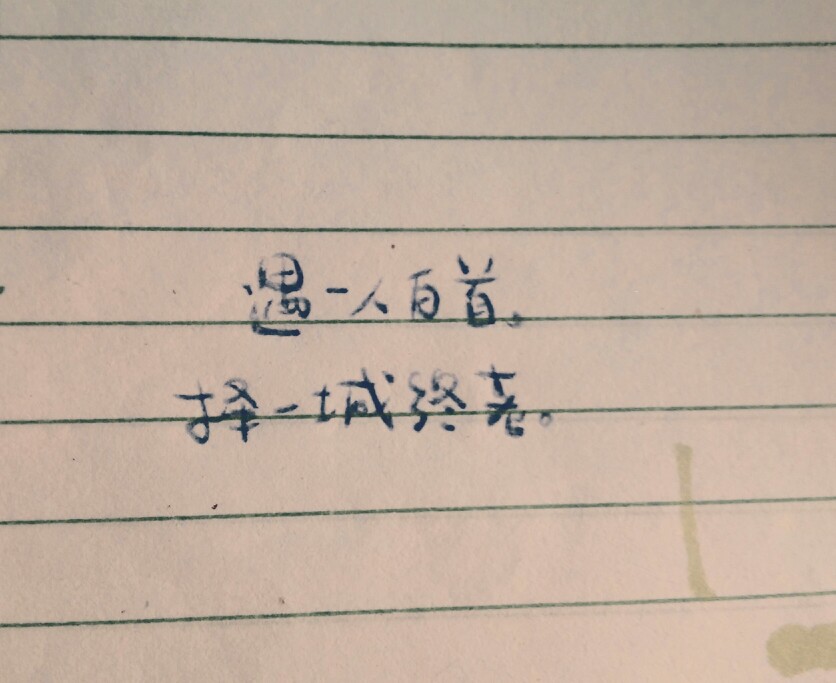 遇一人白首。
择一城终老。